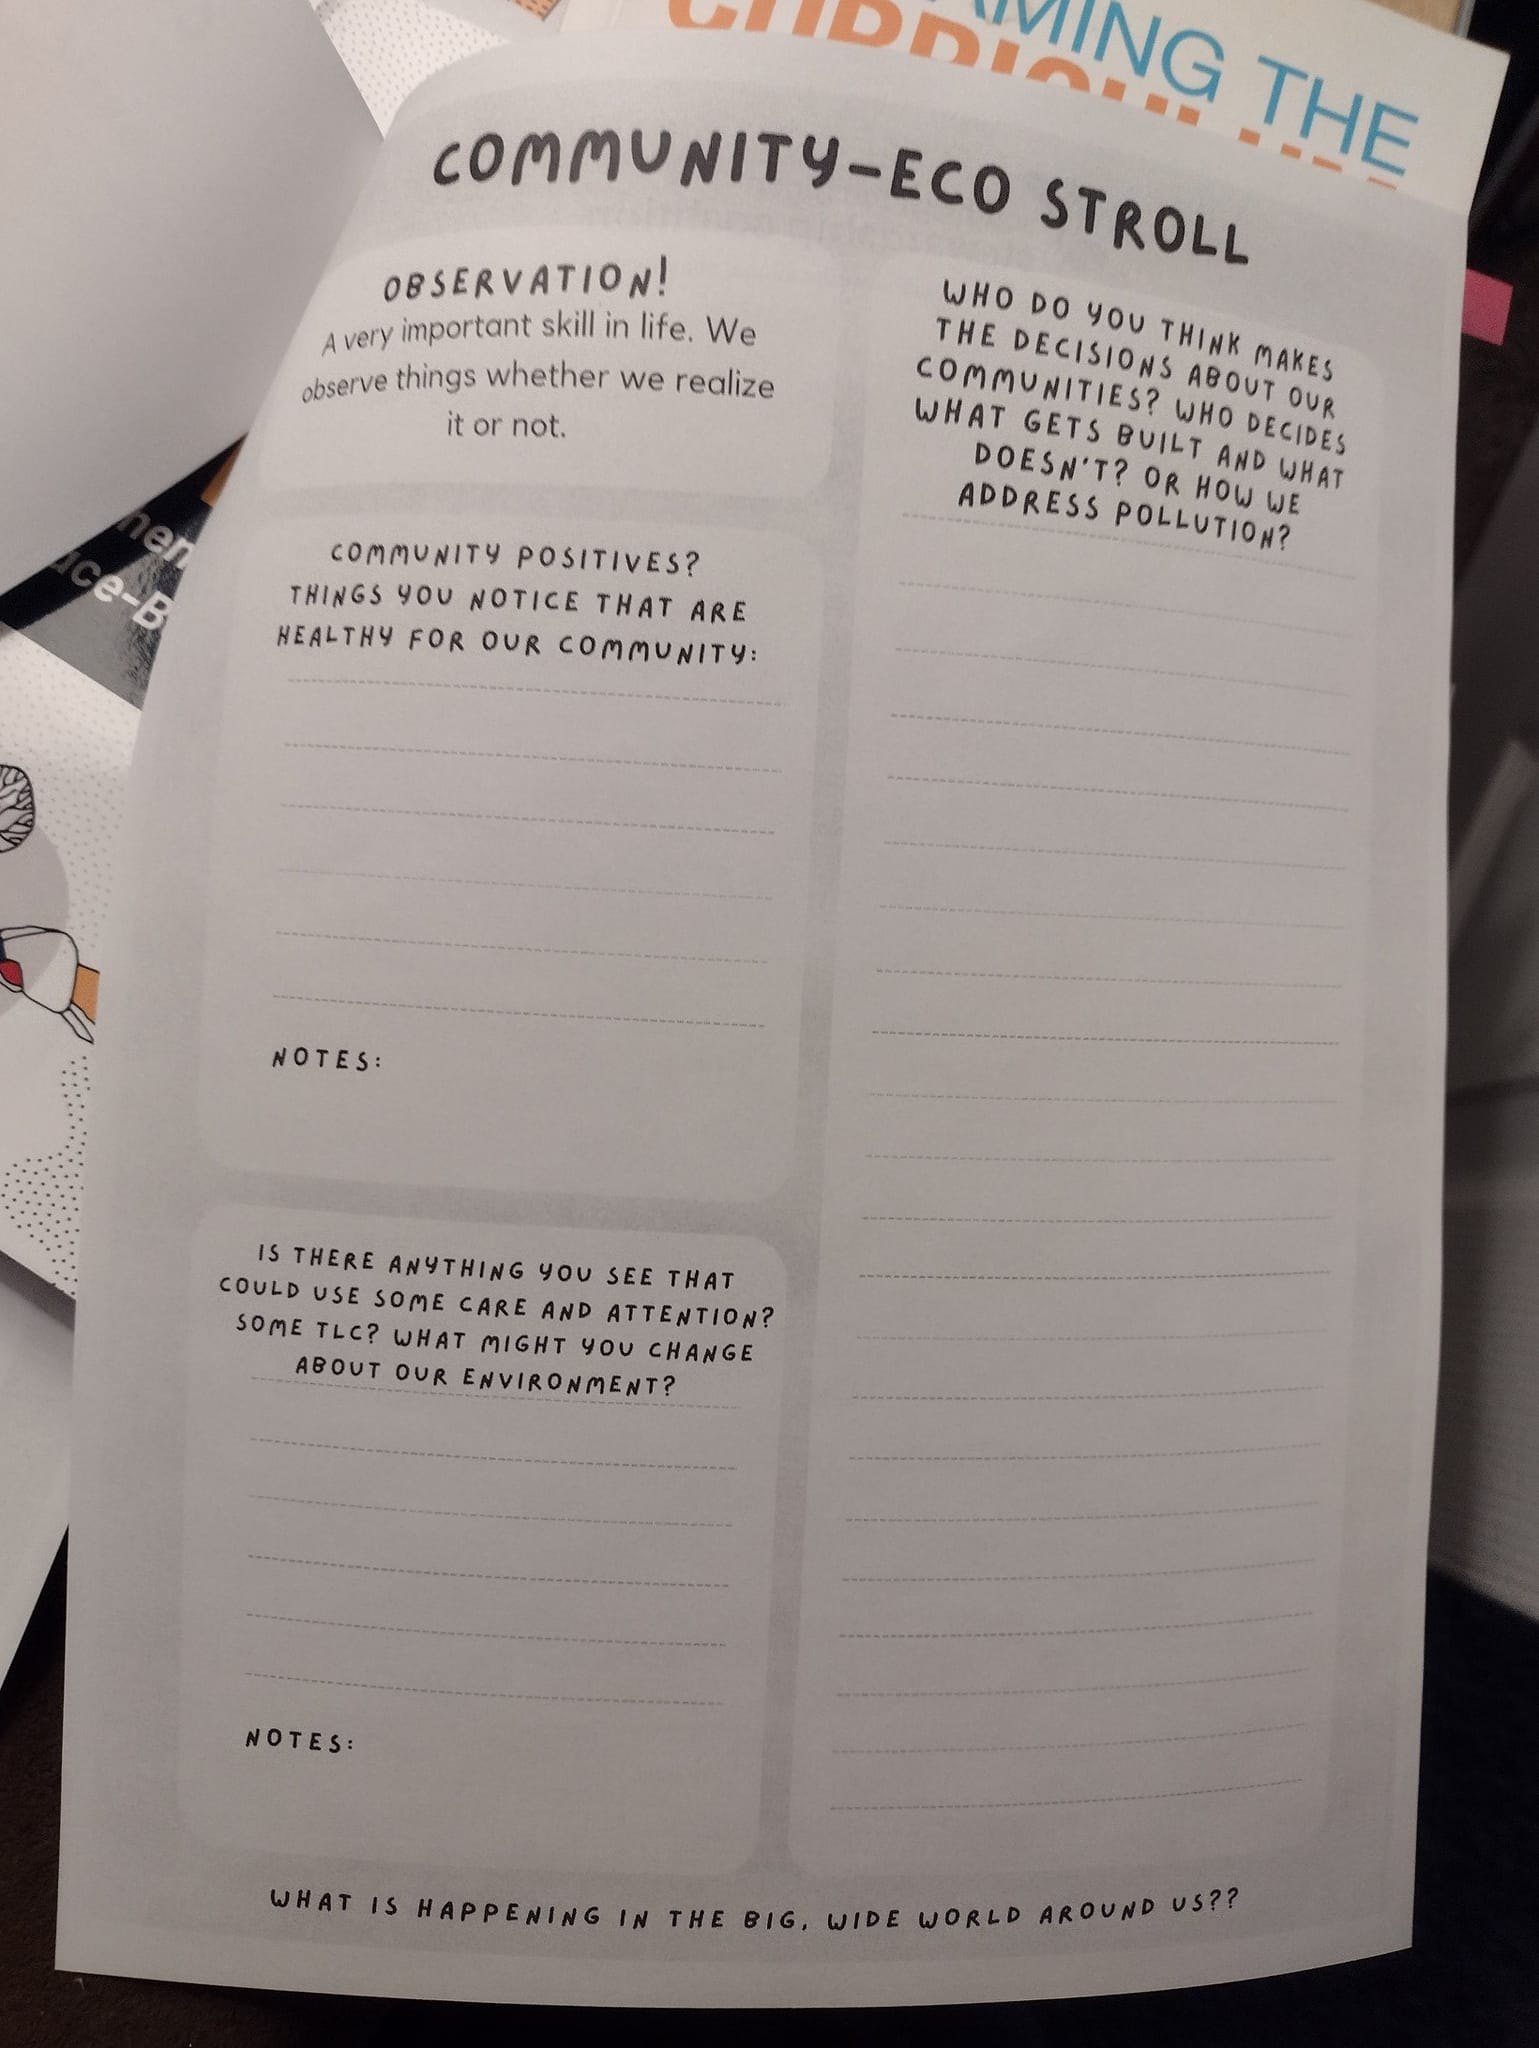 AMING THE
COMMUNITY-ECO STROLL
OBSERVATION!
A very important skill in life. We
observe things whether we realize
it or not.
COMMUNITY POSITIVES?
THINGS YOU NOTICE THAT ARE
HEALTHY FOR OUR COMMUNITY:
NOTES:
IS THERE ANYTHING YOU SEE THAT
COULD USE SOME CARE AND ATTENTION?
SOME TLC? WHAT MIGHT YOU CHANGE
ABOUT OUR ENVIRONMENT?
NOTES:
WHO DO YOU THINK MAKES
THE DECISIONS ABOUT OUR
COMMUNITIES? WHO DECIDES
WHAT GETS BUILT AND WHAT
DOESN'T? OR HOW WE
ADDRESS POLLUTION?
WHAT IS HAPPENING IN THE BIG, WIDE WORLD AROUND US??